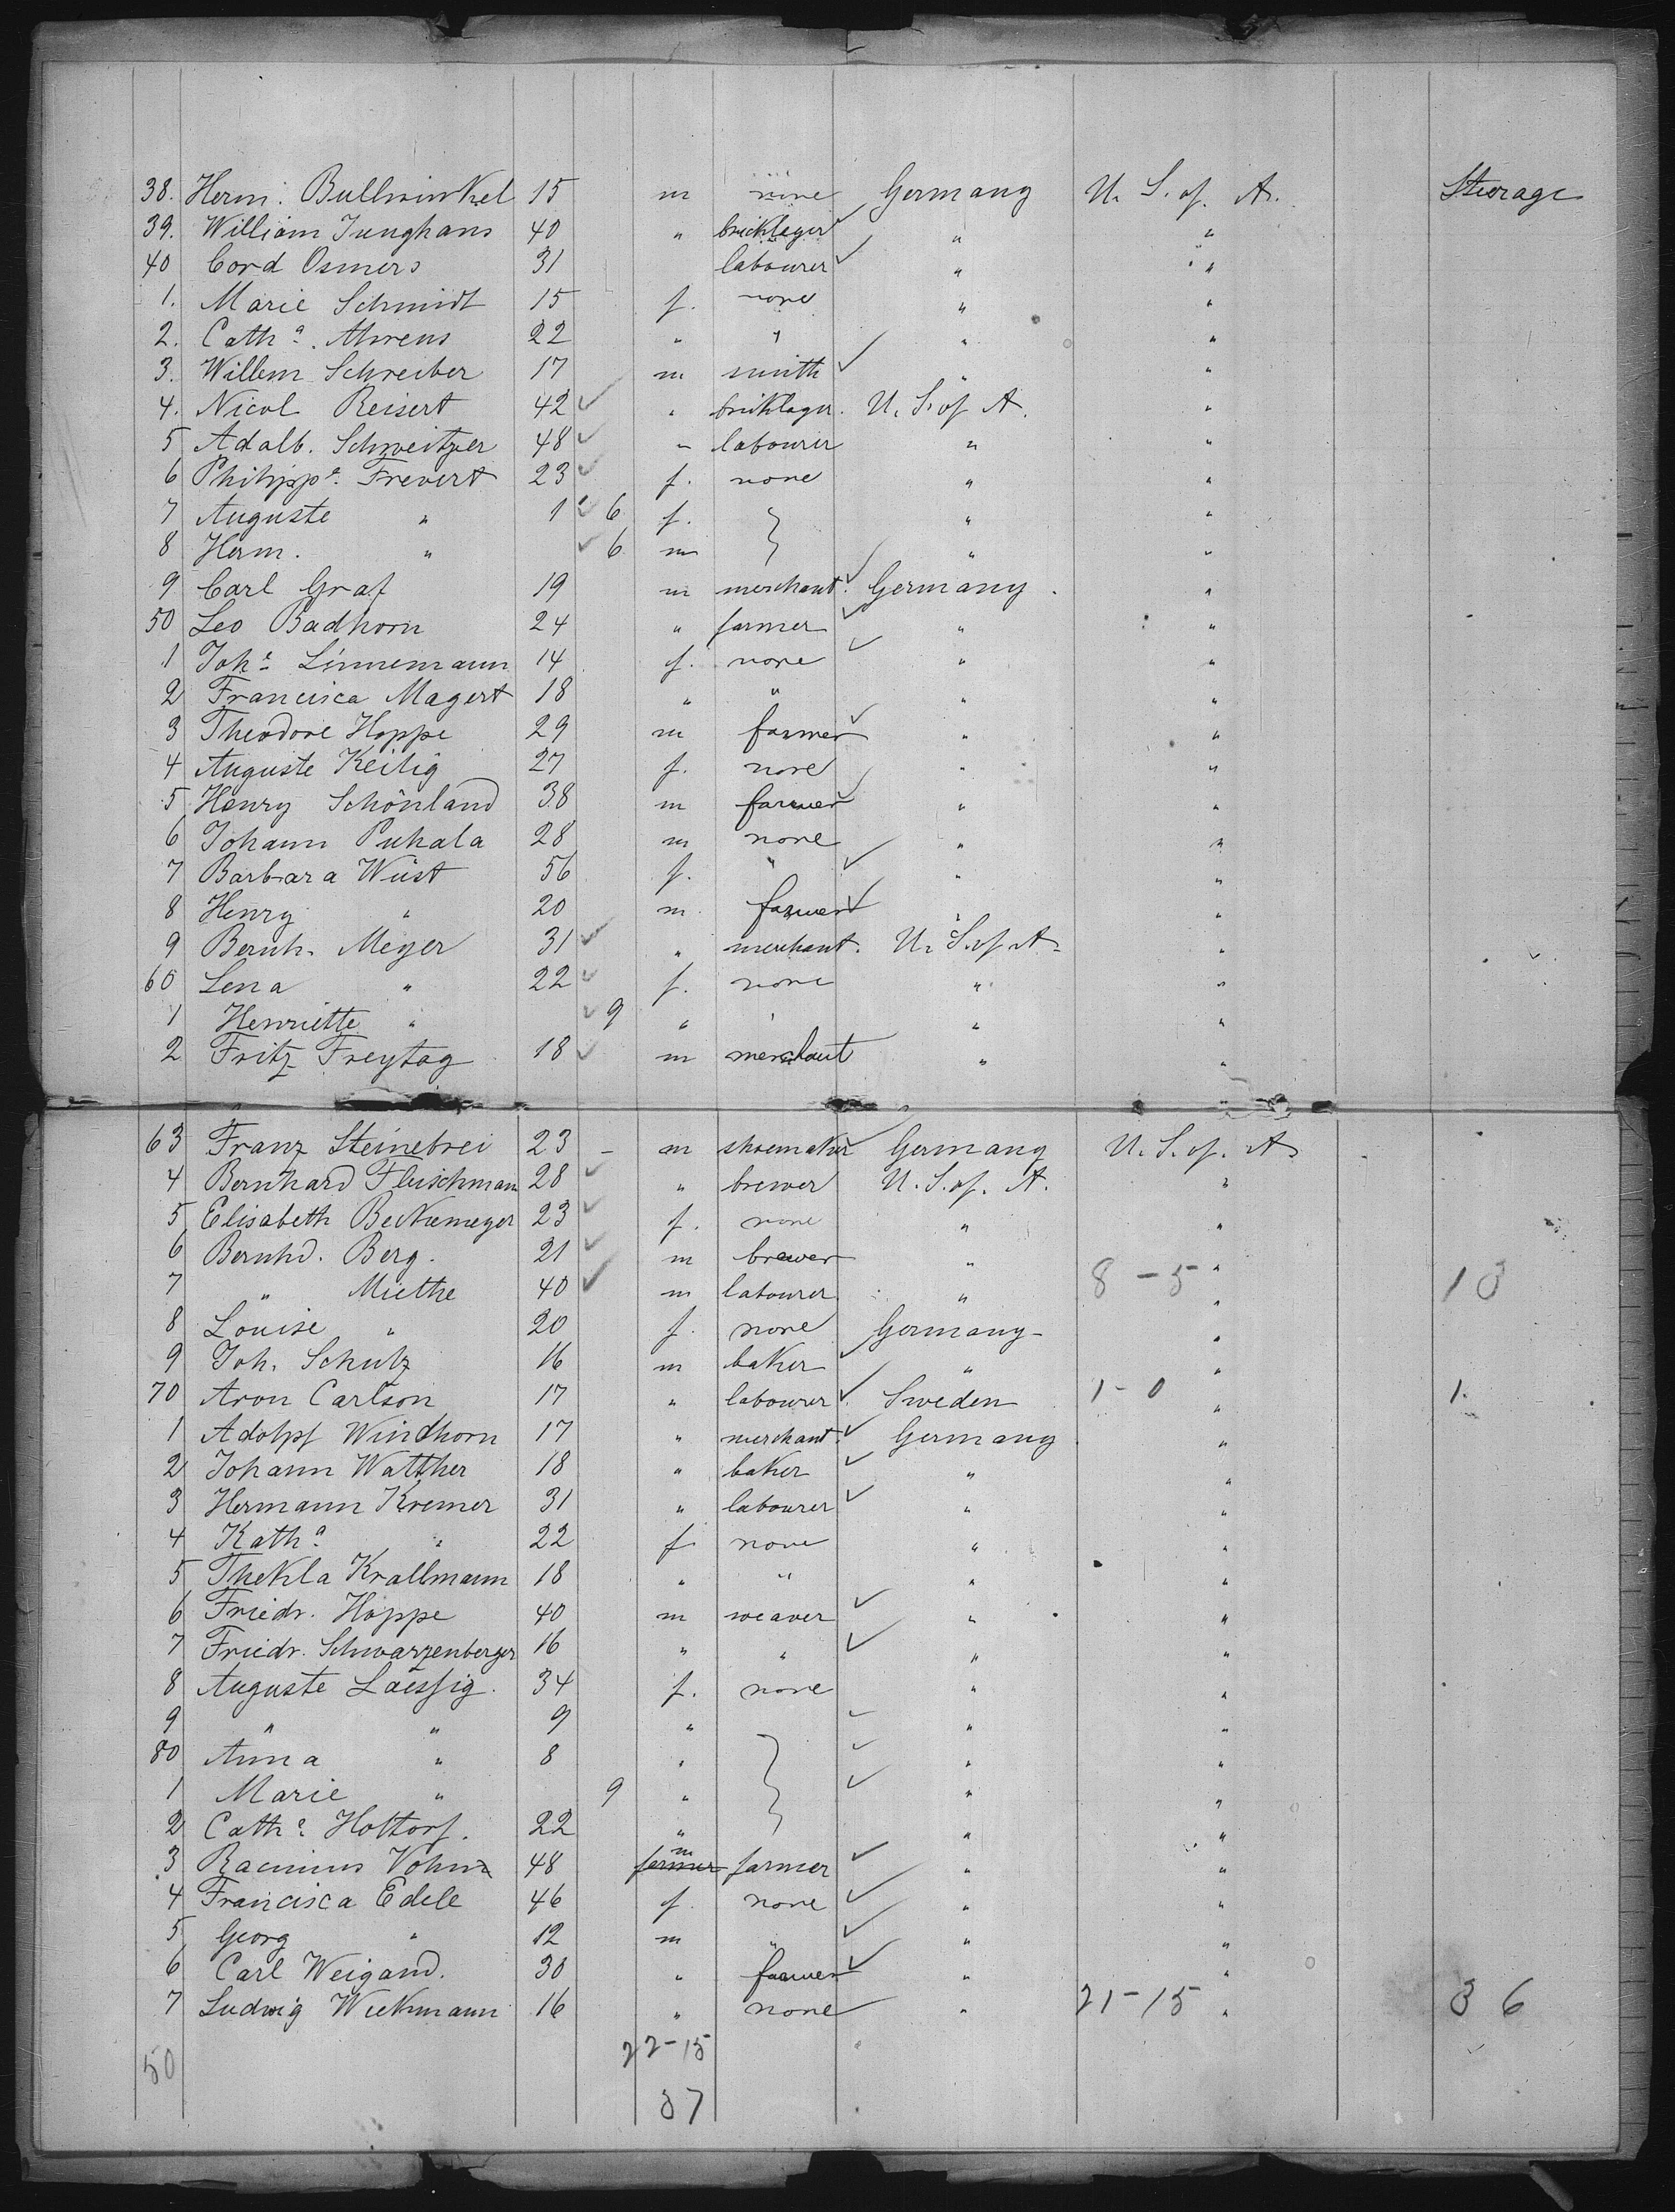 38. Herm. Bullwinkel 15 m none Germany U. S. of. A. Steerage
39. William Junghans 40 " bricklayer " "
40 Cord Osmers 31 labourer " "
1. Marie Schmidt 15 f. none " "
2. Cath.a Ahrens 22 " " " "
3. Willem Schreiber 17 m smith " "
4. Nicol Reisert 42 " bricklayer. U. S. of A. "
5 Adalb. Schweitzer 48 " labourer " "
6 Philipp.e Frevert 23 f. none " "
7 Auguste " 1 6 f. } " "
8 Herm. " 6 m " "
9 Carl Graf 19 m merchant. Germany. "
50 Leo Badhorn 24 " farmer " "
1 Joh.e Linnemann 14 f. none " "
2 Francisca Magert 18 " " " "
3 Theodore Hoppe 29 m farmer " "
4 Auguste Keilig 27 f. none " "
5 Henry Schönland 38 m farmer " "
6 Johann Puhala 28 m none " "
7 Barbara Wüst 56 f. " " "
8 Henry " 20 m farmer " "
9 Bernh. Meyer 31 " merchant. U. S. of A. "
60 Lena " 22 f. none " "
1 Henriette " 9 " " " "
2 Fritz Freytag 18 m merchant " "
63 Franz Steinebrei 23 - m shoemaker Germany U. S. of. A
4 Bernhard Fleischmann 28 " brewer U. S. of. A. "
5 Elisabeth Beckemeyer 23 f. none " "
6 Bernhd. Berg. 21 m brewer " "
7 " Miethe 40 m labourer " 8-5 " 13
8 Louise " 20 f. none Germany "
9 Joh. Schulz 16 m baker " "
70 Aron Carlson 17 " labourer Sweden 1-0 " 1.
1 Adolpf Windhorn 17 " merchant. Germany "
2 Johann Walther 18 " baker " "
3 Hermann Kremer 31 " labourer " "
4 Kath.a " 22 f none " "
5 Thekla Krallmann 18 " " " "
6 Friedr. Hoppe 40 m weaver " "
7 Friedr. Schwarzenberger 16 " " " "
8 Auguste Laessig. 34 f. none " "
9 " " 9 " } " "
80 Anna " 8 " " "
1 Marie " 9 " " "
2 Cath.e Hottorf. 22 " " "
3 48 farmer m farmer " "
4 Francisca Edele 46 f. none " "
5 Georg " 12 m " " "
6 Carl Weigand. 30 " farmer " "
7 Ludwig Wiekmann 16 " none " 21-15 " 36
50 22-15
37